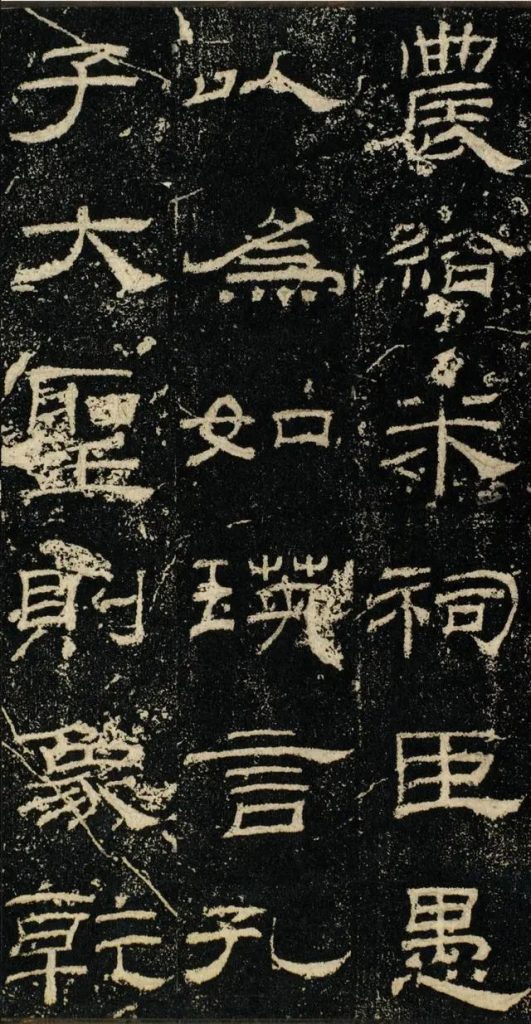 農給米祠臣愚
以為如瑛言孔
子大聖則象乾